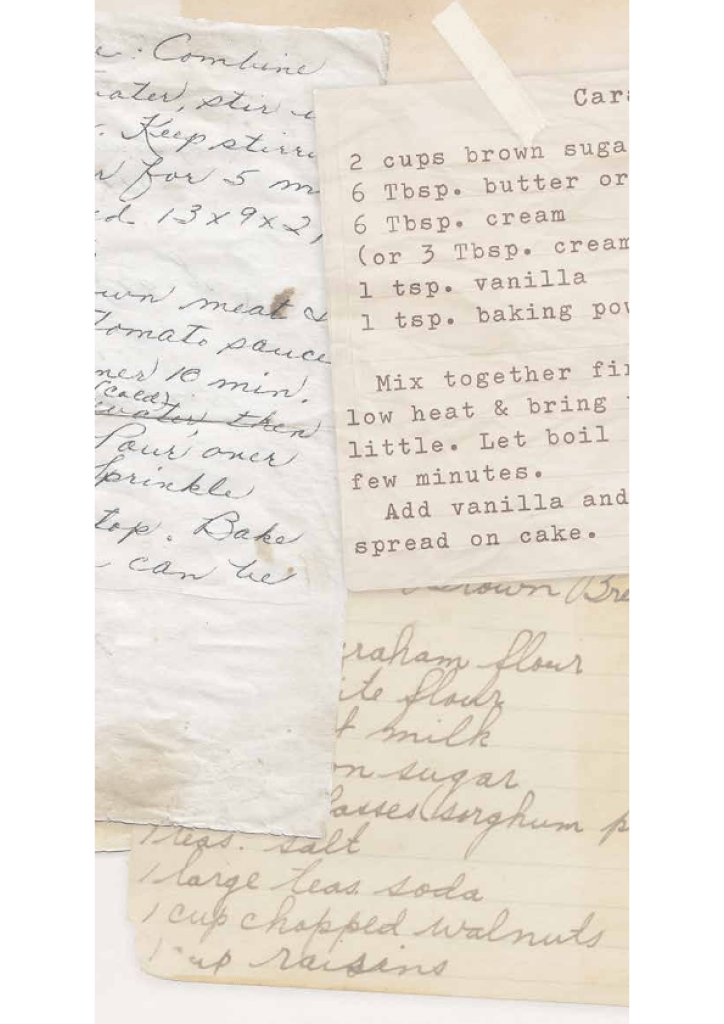 : Combine
water, stir
. Keep stirri
for 5 m
13 x 9 x 2,
own meat &
tomato sauce
10 min.
(cold)
water, then
Pour over
Sprinkle
top. Bake
can be
Cara
2 cups brown suga
6 Tbsp. butter or
6 Tbsp. cream
(or 3 Tbsp. cream
1 tsp. vanilla
1 tsp. baking pow
Mix together fir
low heat & bring
little. Let boil
few minutes.
Add vanilla and
spread on cake.
Brown Bre
raham flour
ite flour
milk
on sugar
lasses (sorghum p
1 teas. salt
1 large teas. soda
1 cup chopped walnuts
1 cup raisins